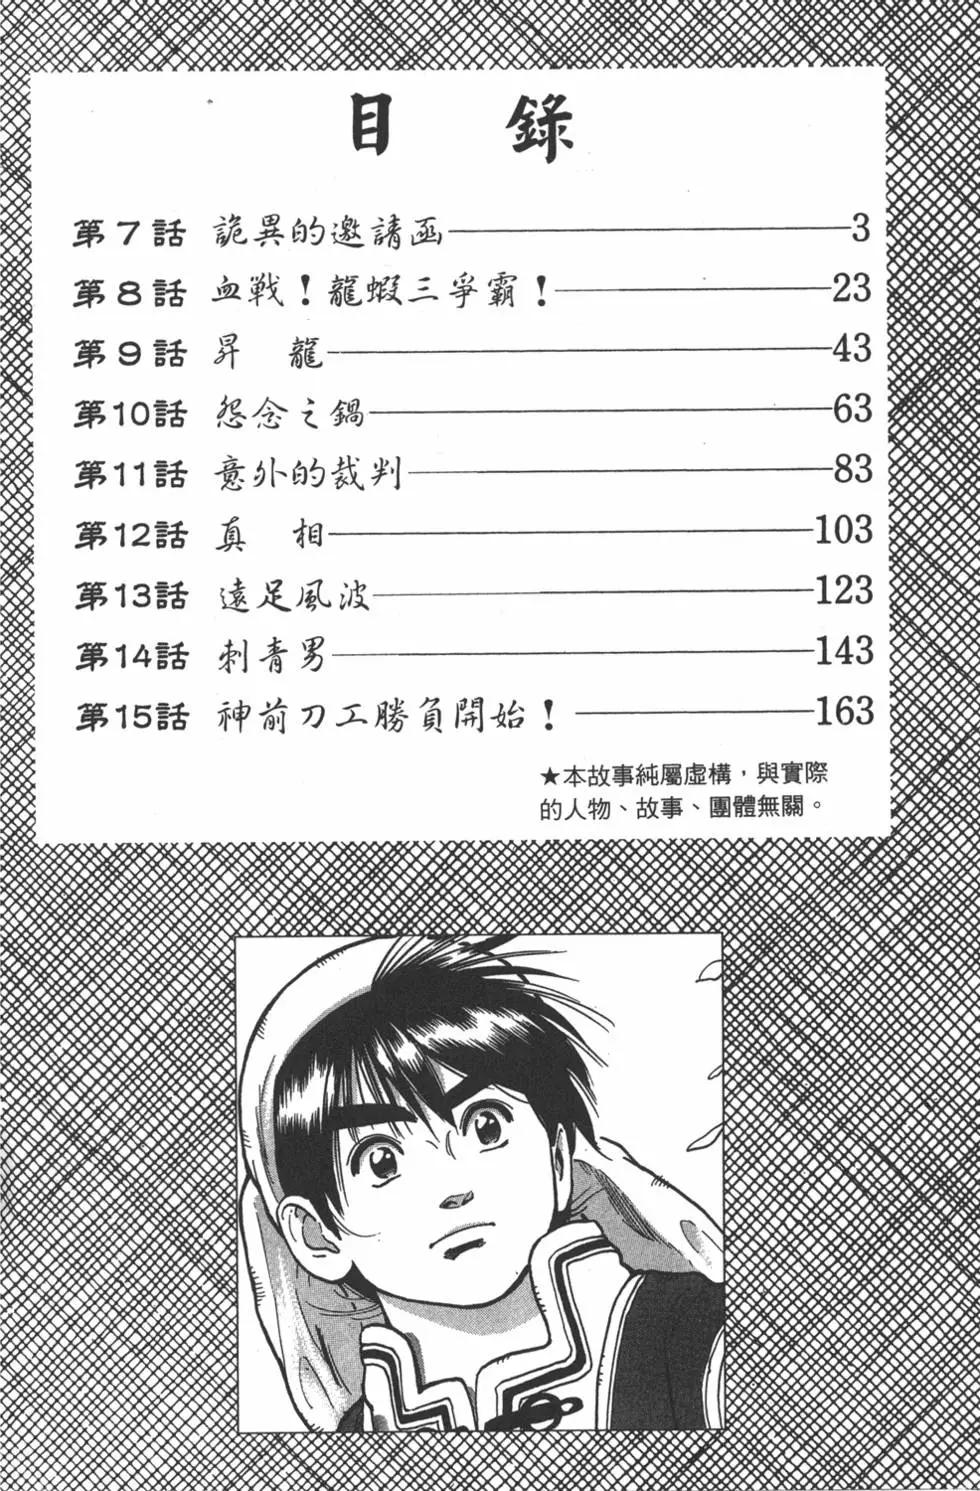 目 錄
第7話 詭異的邀請函 3
第8話 血戰！龍蝦三爭霸！ 23
第9話 昇 龍 43
第10話 怨念之鍋 63
第11話 意外的裁判 83
第12話 真 相 103
第13話 遠足風波 123
第14話 刺青男 143
第15話 神前刀工勝負開始！ 163
★本故事純屬虛構，與實際
的人物、故事、團體無關。